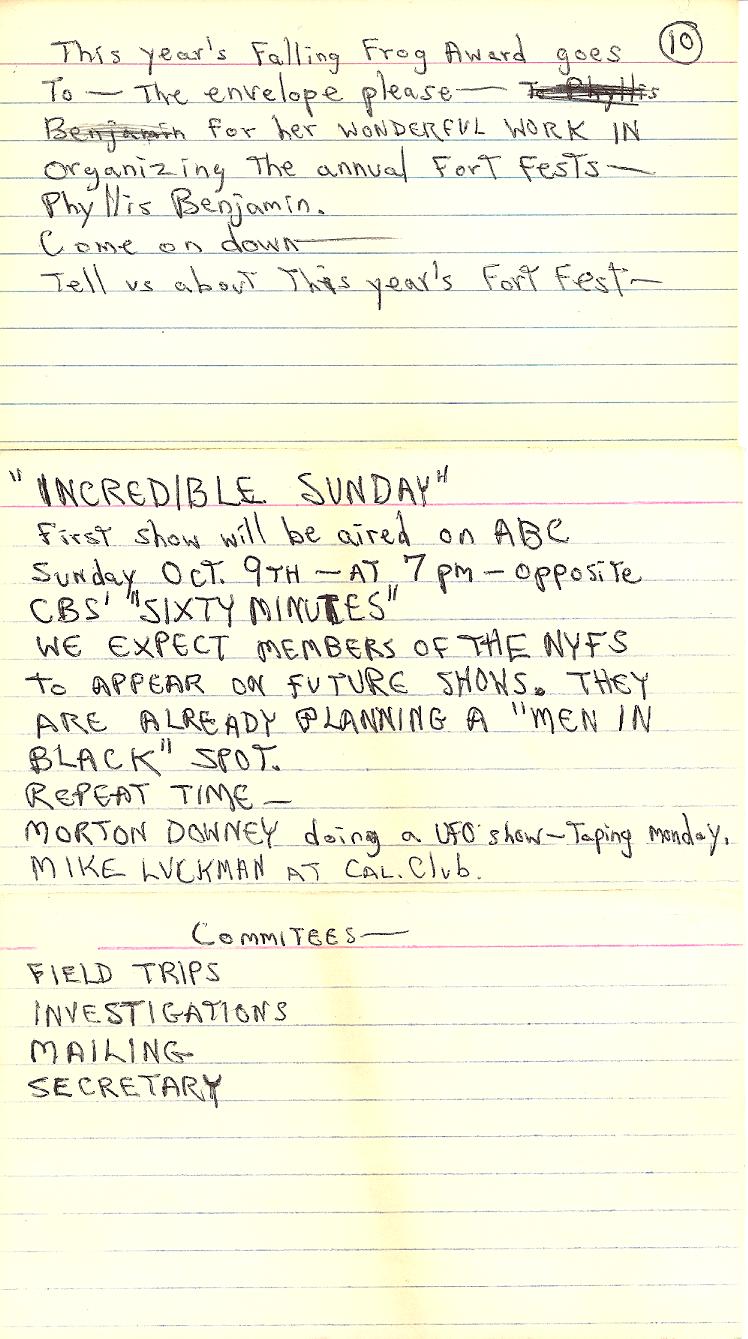 This year's Falling Frog Award goes (10)
To — The envelope please — To Phyllis
Benjamin for her WONDERFUL WORK IN
organizing The annual Fort Fests —
Phyllis Benjamin.
Come on down —
Tell us about This year's Fort Fest —
"INCREDIBLE SUNDAY"
First show will be aired on ABC
Sunday OCT. 9TH — AT 7 pm — opposite
CBS' "SIXTY MINUTES"
WE EXPECT MEMBERS OF THE NYFS
To APPEAR ON FUTURE SHOWS. THEY
ARE ALREADY PLANNING A "MEN IN
BLACK" SPOT.
REPEAT TIME —
MORTON DOWNEY doing a UFO show — Taping monday.
MIKE LUCKMAN AT CAL. Club.
COMMITEES —
FIELD TRIPS
INVESTIGATIONS
MAILING
SECRETARY